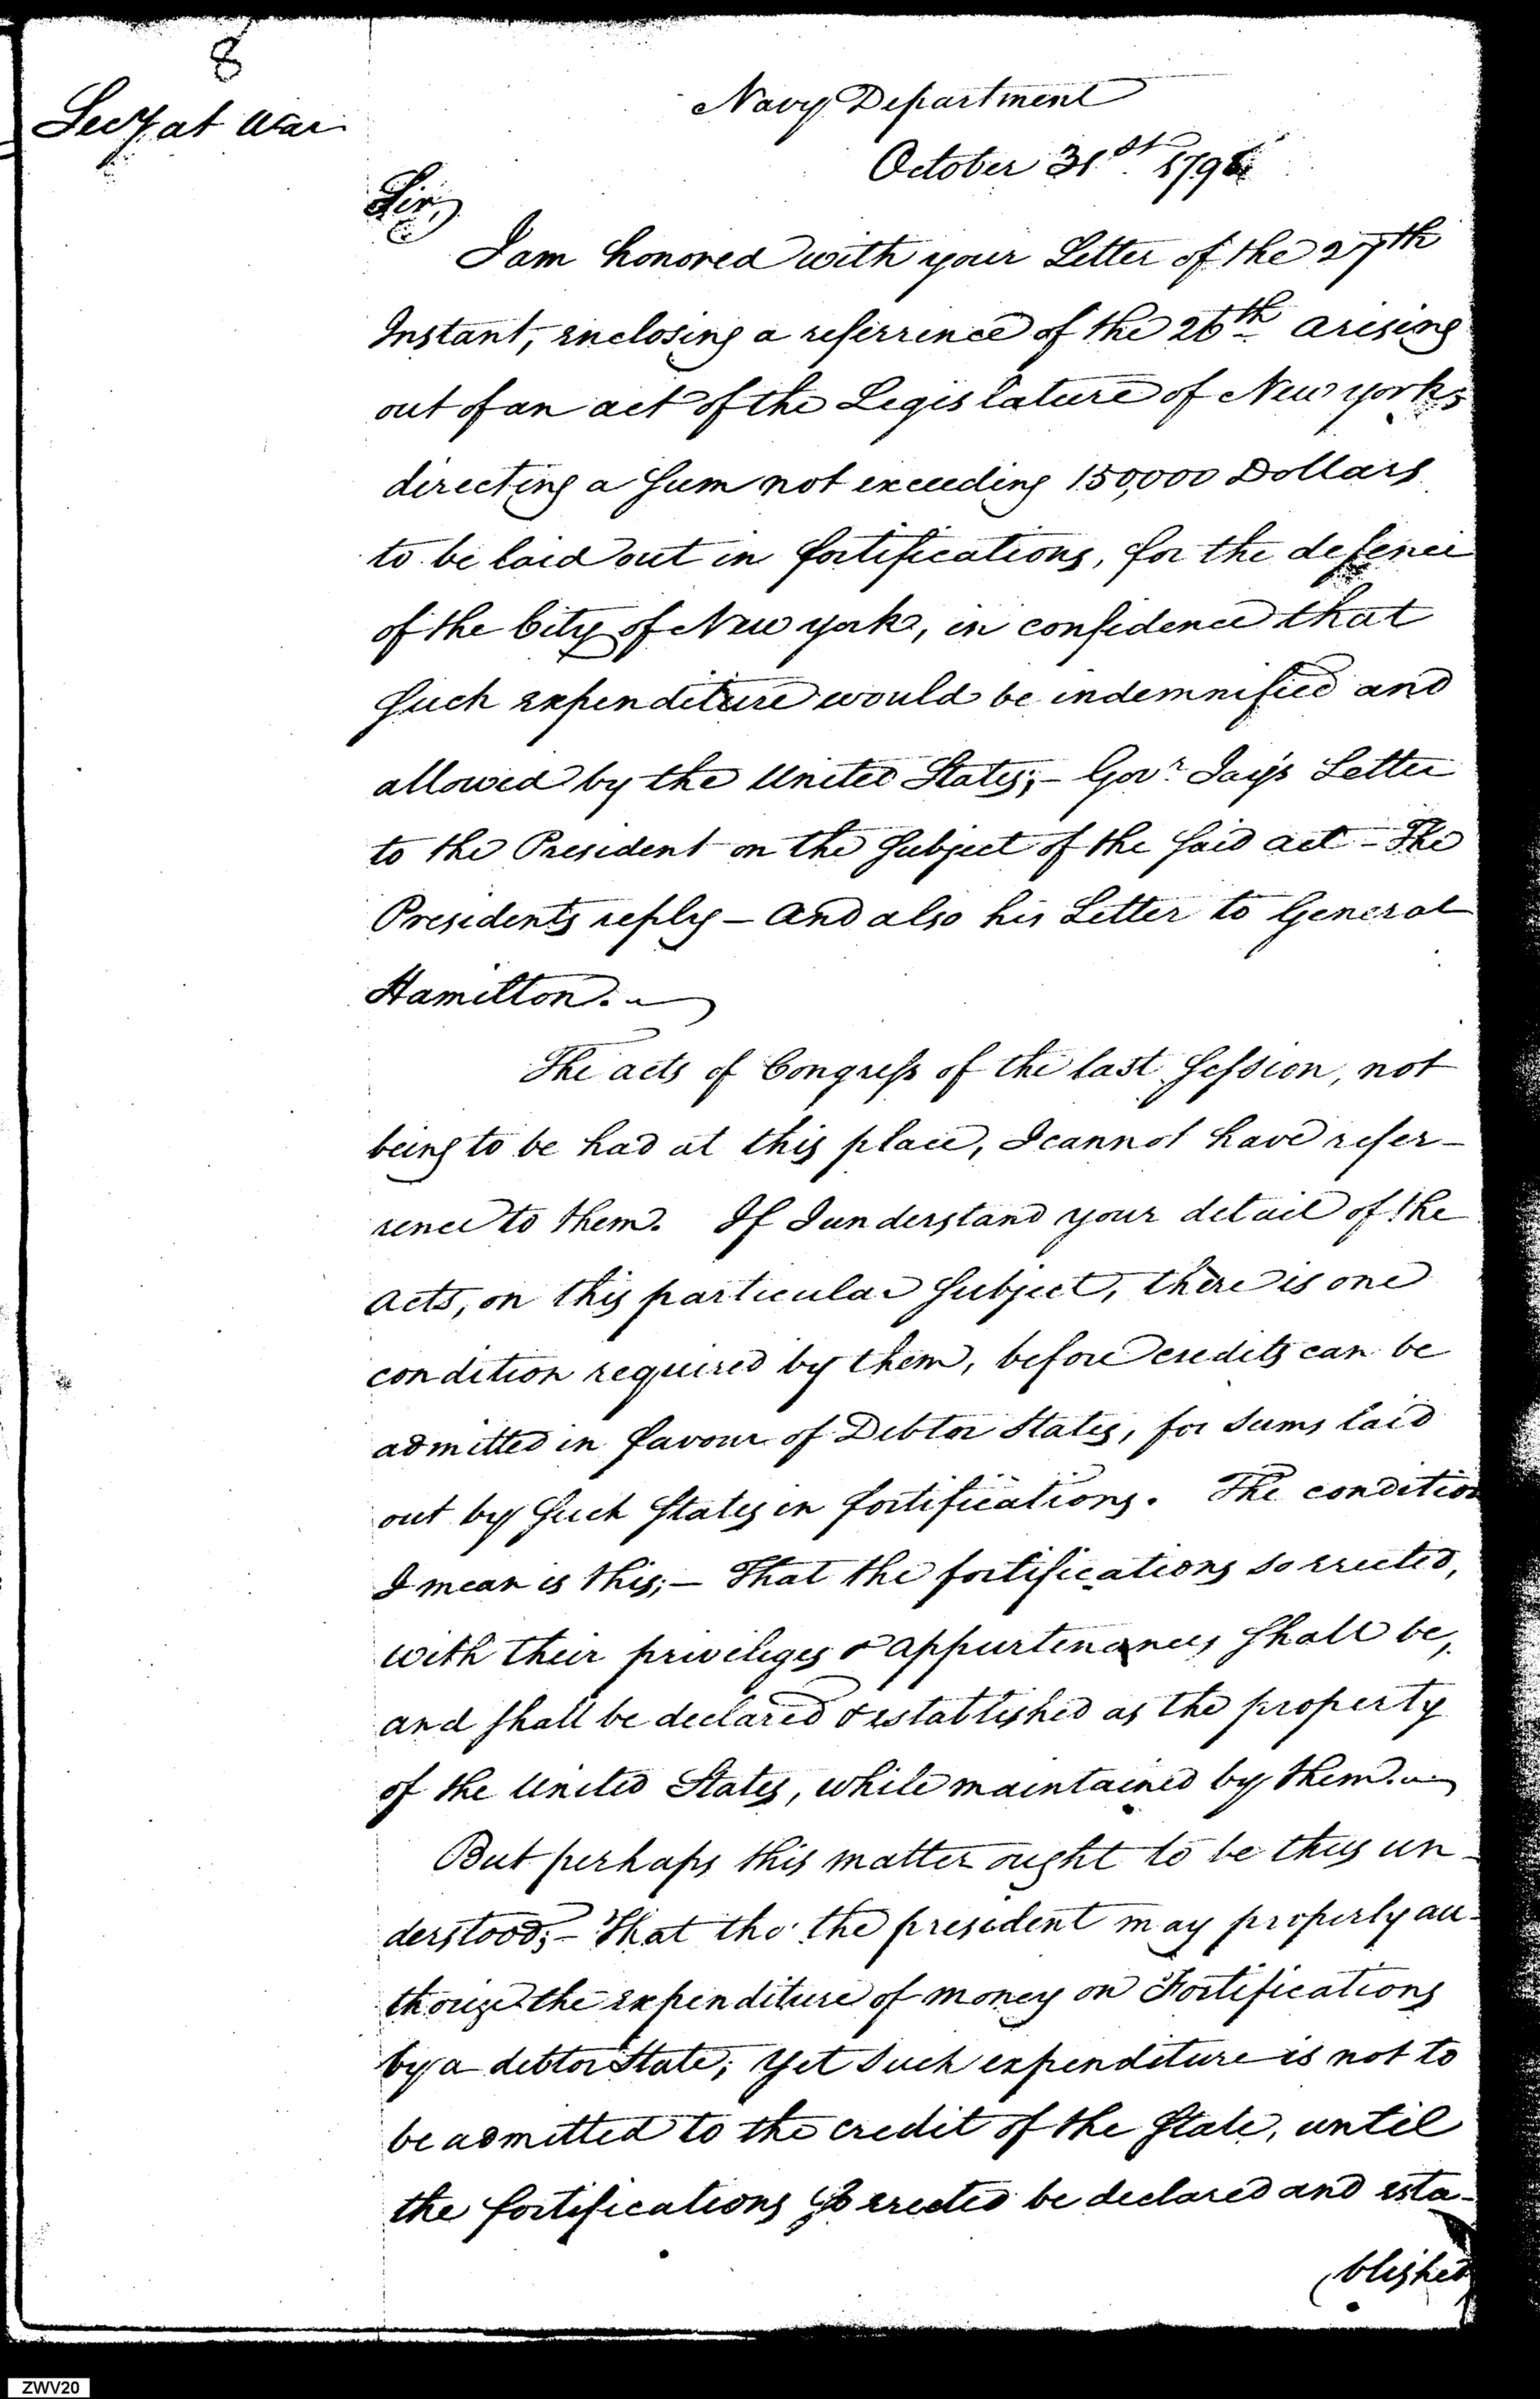 8
Secy at War
Navy Department
October 31st. 1798
Sir,
I am honored with your Letter of the 27th
Instant, enclosing a referrence of the 26th arising
out of an act of the Legislature of New york,
directing a Sum not exceeding 150,000 Dollars
to be laid out in fortifications, for the defence
of the City of New york, in confidence that
Such expenditure would be indemnified and
allowed by the United States;— Govr. Jay's Letter
to the President on the Subject of the Said act — The
Presidents reply — and also his Letter to General
Hamilton.
The acts of Congress of the last Session, not
being to be had at this place, I cannot have refer-
rence to them. If I understand your detail of the
acts, on this particular Subject, there is one
condition required by them, before credits can be
admitted in favour of Debtor States, for Sums laid
out by Such States in fortifications. The condition
I mean is this;— That the fortifications so erected,
with their privileges & appurtenances Shall be,
and shall be declared & established as the property
of the United States, while maintained by them.
But perhaps this matter ought to be thus un-
derstood;— That tho' the president may properly au-
thorize the expenditure of money on Fortifications
by a debtor State; yet Such expenditure is not to
be admitted to the credit of the State, until
the fortifications So erected be declared and esta-
blished
ZWV20